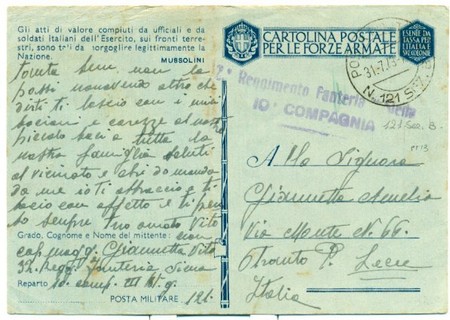 Gli atti di valore compiuti da ufficiali e da
soldati italiani dell'Esercito, sui fronti terre-
stri, sono tali da inorgoglire legittimamente la
Nazione.
MUSSOLINI
bene non
possi altro che
dirti ti lascio con i miei
bacioni e carezze al nostro
piccolo baci a tutta la
nostra famiglia saluti
al vicinato e chi domanda
da me io ti abbraccio e ti
bacio con affetto e ti penso
sempre tuo marito Vito
Grado, Cognome e Nome del mittente:
cap. magg. Giannetta Vito
32 Regg. Fanteria Siena
Reparto 10 comp. III
POSTA MILITARE 121.
CARTOLINA POSTALE
PER LE FORZE ARMATE
ESENTE DA
TASSA PER
L'ITALIA E
31.7
N. 121
Reggimento Fanteria
10ª COMPAGNIA
Alla Signora
Giannetta Amelia
Via Monte N. 66.
P. Lecce
Italia